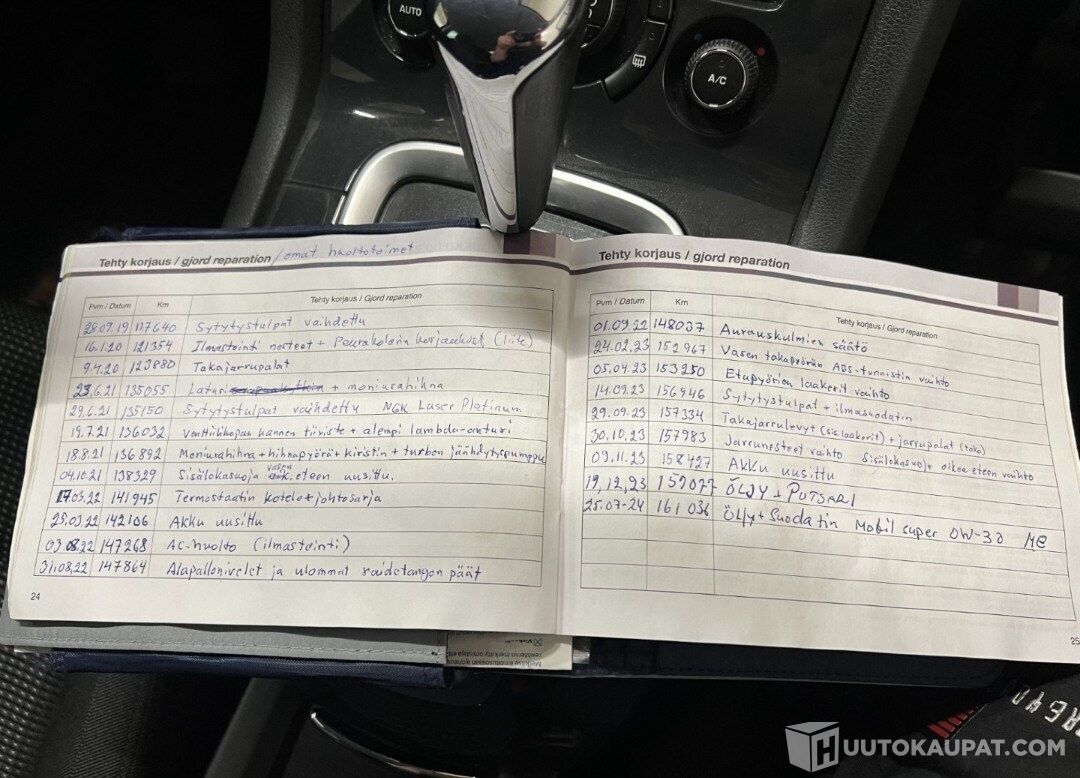 AUTO
A/C
Tehty korjaus / gjord reparation / omat huoltotoimet
Pvm / Datum Km Tehty korjaus / Gjord reparation
28.09.19 117640 Sytytystulpat vaihdettu
16.1.20 121354 Ilmastointi nesteet + Peurakolarin korjaukset (Liite)
9.4.20 123880 Takajarrupalat
23.6.21 135055 Laturi + moniurahihna
29.6.21 135150 Sytytystulpat vaihdettu NGK Laser Platinum
19.7.21 136032 Venttiilikopan kannen tiiviste + alempi lambda-anturi
18.8.21 136892 Moniurahihna + hihnapyörät + kiristin + turbon jäähdytyspumppu
04.10.21 138329 Sisälokasuoja vasen eteen uusittu.
17.03.22 141945 Termostaatin kotelo + johtosarja
25.03.22 142106 Akku uusittu
03.08.22 147268 AC-huolto (ilmastointi)
31.08.22 147864 Alapallonivelet ja ulommat raidetangon päät
24
Tehty korjaus / gjord reparation
Pvm / Datum Km Tehty korjaus / Gjord reparation
01.09.22 148037 Aurauskulmien säätö
24.02.23 152967 Vasen takapyörän ABS-tunnistin vaihto
05.04.23 153250 Etupyörien laakerit vaihto
14.09.23 156946 Sytytystulpat + ilmasuodatin
29.09.23 157334 Takajarrulevyt (sis. laakerit) + jarrupalat (taka)
30.10.23 157983 Jarrunesteet vaihto Sisälokasuoja oikea eteen vaihto
09.11.23 158427 Akku uusittu
19.12.23 159077 ÖLJY + PUTSARI
25.07-24 161036 Öljy + Suodatin Mobil super 0W-30
25
HUUTOKAUPAT.COM